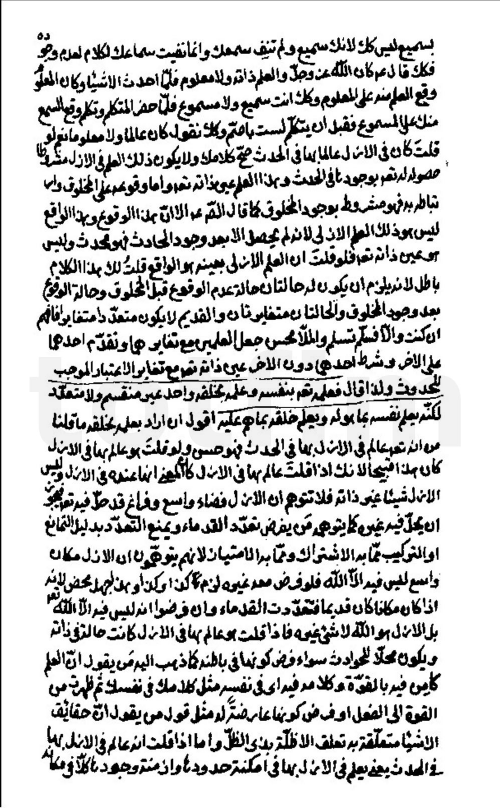 ٥٥
بسميع ليس كك لانك سميع ولم تنف سمعك وانما نفيت سماعك لكلام لعدم وجو
فكك قال كان الله عز وجل والعلم ذاته ولا معلوم فلما احدث الاشياء وكان المعلوم
وقع العلم منه على المعلوم وكك انت سميع ولا مسموع فلما حضر المتكلم وتكلم وقع السمع
منك على المسموع فقبل ان يتكلم لست باصم وكك نقول كان عالما ولا معلوما فلو
قلت كان في الازل عالما بها في الحدث صح كلامك ولا يكون ذلك العلم في الازل مشروطا
حصوله له تعم بوجود ما في الحدث وهذا العلم عين ذاته تعم واما وقوعه على المخلوق وا
تباطه به فهو مشروط بوجود المخلوق كما قال الله هذا الوقوع وهذا الواقع
ليس هو ذلك العلم الازلي لانه لم يحصل الا بعد وجود الحادث فهو محدث وليس
هو عين ذاته تعم فلو قلت ان العلم الازلي بعينه هو الواقع قلت لك هذا الكلام
باطل لانه يلزم ان يكون له حالتان حالة عدم الوقوع قبل المخلوق وحالة الوقوع
بعد وجود المخلوق والحالتان متغايرتان والقديم لا يكون متعددا متغايرا فافهم
ان كنت والا فسلم تسلم والملا محسن جعل العلمين مع تغايرهما وتقدم احدهما
على الاخر وشرط احدهما دون الاخر عين ذاته تعم مع تغاير الاعتبار الموجب
للحدوث ولذا قال فعلمه تعم بنفسه وعلمه بخلقه واحد غير منقسم ولا متعدد
لكنه يعلم نفسه بما هو له ويعلم خلقه بما هو عليه اقول ان اراد بعلمه بخلقه ما قلنا
من انه تعم عالم في الازل بها في الحدث فهو حسن ولو قلت هو عالم بها في الازل
كان هذا قبيحا لانك اذا قلت عالم بها في الازل كان المعنى انها عنده في الازل وليس
الازل شيئا غير ذاته فلا تتوهم ان الازل فضاء واسع وفراغ قد حل فيه تعم فيجوز
ان يحل فيه غيره كما يتوهم من يفرض تعدد القدماء ويمنع التعدد بدليل التمانع
او التركيب مما به الاشتراك ومما به الامتياز لانهم يتوهمون ان الازل مكان
واسع ليس فيه الا الله فلو فرض معه غيره لزم كذا وكذا وهذا جهل محض لانه
اذا كان مكانا كان قديما فتعددت القدماء وان فرضوا انه ليس فيه الا الله تعم
بل الازل هو الله لا شيء غيره فاذا قلت هو عالم بها في الازل كانت حالة في ذاته
ويكون محلا للحوادث سواء فرض كونها في باطنه كما ذهب اليه من يقول ان العلم
كامن فيه بالقوة وكلامه فيه اي في نفسه مثل كلامك في نفسك ثم ظهرت من
القوة الى الفعل او فرض كونها عارضة له مثل قول من يقول ان حقايق
الاشياء متعلقة به تعلق الاظلة بذي الظل واما اذا قلت انه عالم في الازل بها
في الحدث يعني يعلم في الازل بها في امكنة حدودها وازمنة وجودها كلا في مكانه